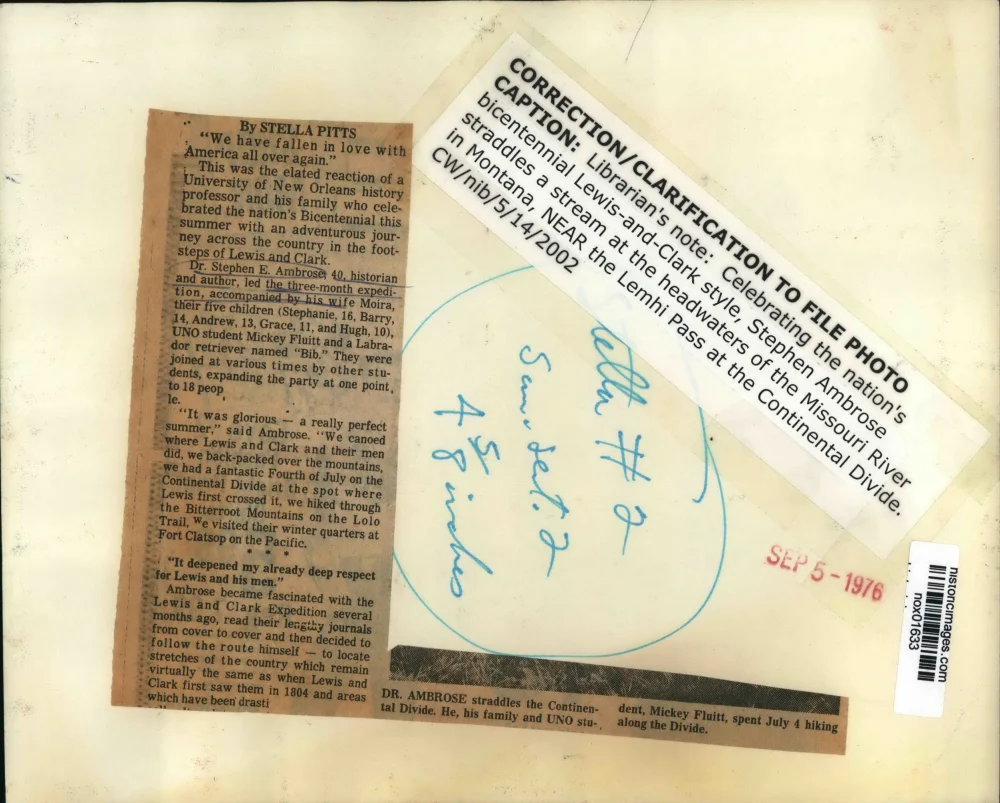 By STELLA PITTS
"We have fallen in love with
America all over again."
This was the elated reaction of a
University of New Orleans history
professor and his family who cele-
brated the nation's Bicentennial this
summer with an adventurous jour-
ney across the country in the foot-
steps of Lewis and Clark.
Dr. Stephen E. Ambrose, 40, historian
and author, led the three-month expedi-
tion, accompanied by his wife Moira,
their five children (Stephanie, 16, Barry,
14, Andrew, 13, Grace, 11, and Hugh, 10),
UNO student Mickey Fluitt and a Labra-
dor retriever named "Bib." They were
joined at various times by other stu-
dents, expanding the party at one point,
to 18 peop
le.
"It was glorious — a really perfect
summer," said Ambrose. "We canoed
where Lewis and Clark and their men
did, we back-packed over the mountains,
we had a fantastic Fourth of July on the
Continental Divide at the spot where
Lewis first crossed it, we hiked through
the Bitterroot Mountains on the Lolo
Trail, We visited their winter quarters at
Fort Clatsop on the Pacific.
* * *
"It deepened my already deep respect
for Lewis and his men."
Ambrose became fascinated with the
Lewis and Clark Expedition several
months ago, read their lengthy journals
from cover to cover and then decided to
follow the route himself — to locate
stretches of the country which remain
virtually the same as when Lewis and
Clark first saw them in 1804 and areas
which have been drasti
CORRECTION/CLARIFICATION TO FILE PHOTO
CAPTION: Librarian's note: Celebrating the nation's
bicentennial Lewis-and-Clark style, Stephen Ambrose
straddles a stream at the headwaters of the Missouri River
in Montana, NEAR the Lemhi Pass at the Continental Divide.
CW/nib/5/14/2002
#2
Sun. Sept. 2
4 5/8 inches
SEP 5 - 1976
historicimages.com
nox01633
DR. AMBROSE straddles the Continen-
tal Divide. He, his family and UNO stu-
dent, Mickey Fluitt, spent July 4 hiking
along the Divide.